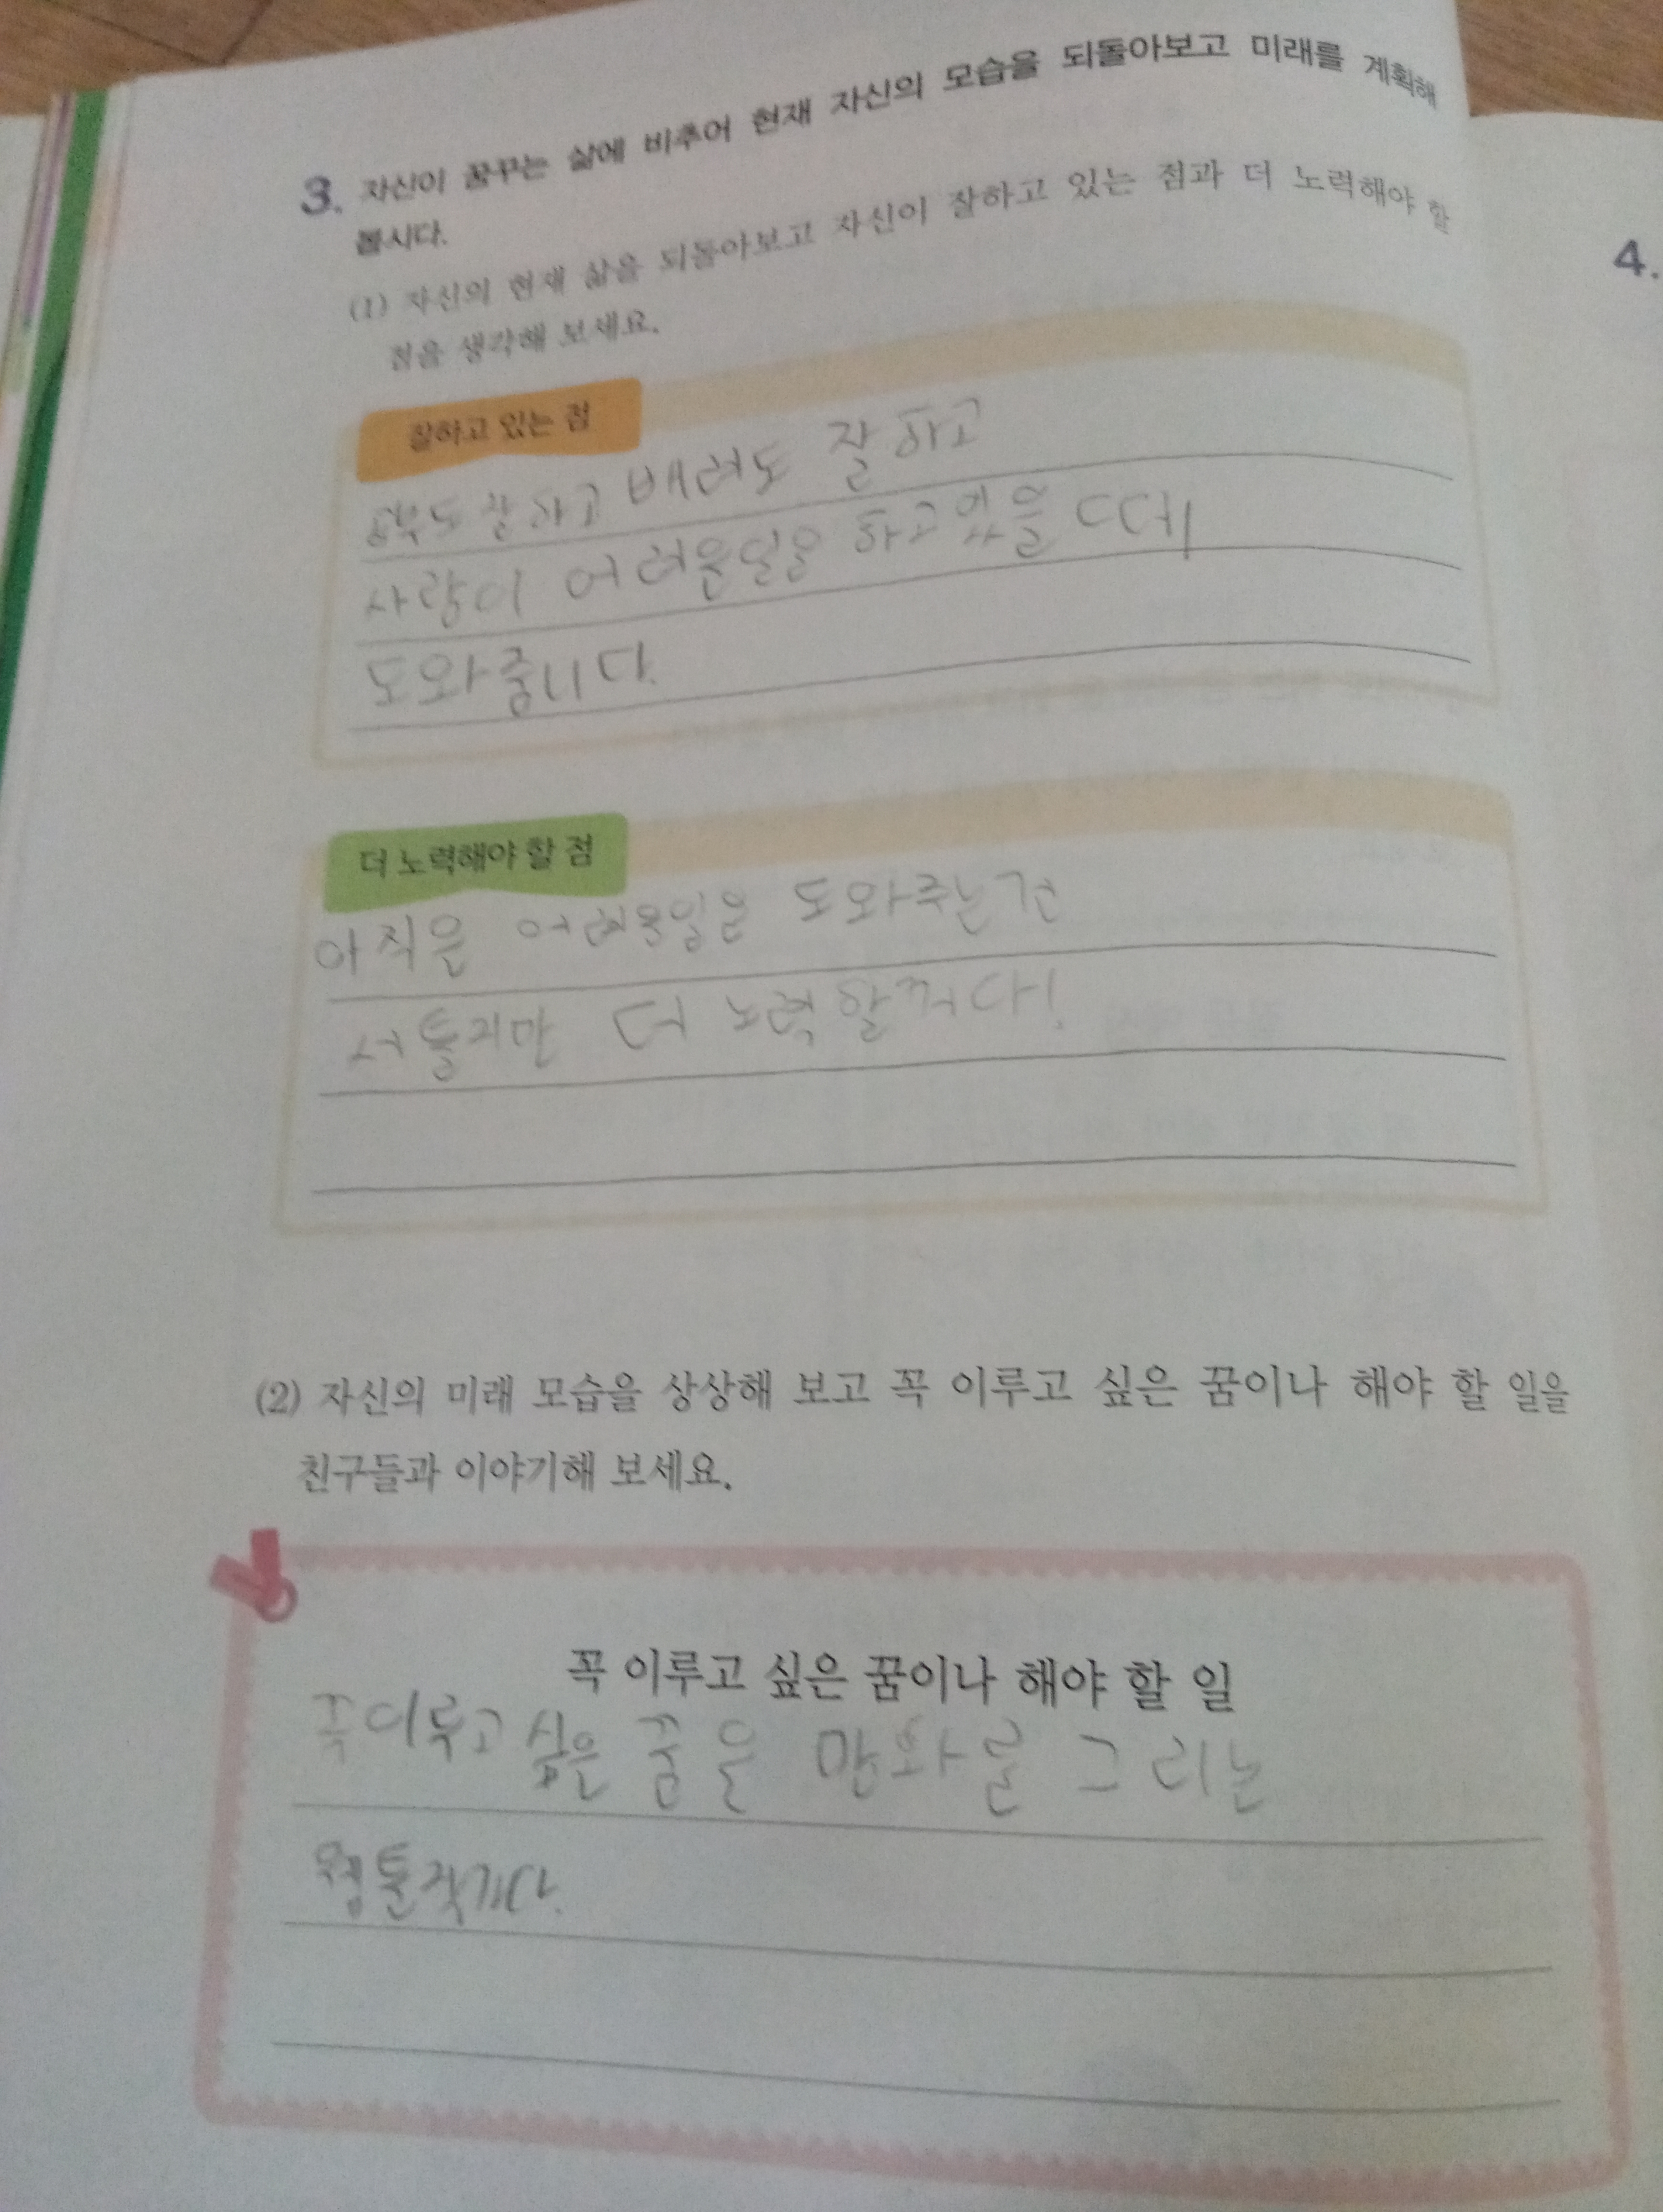 3. 자신이 꿈꾸는 삶에 비추어 현재 자신의 모습을 되돌아보고 미래를 계획해
봅시다.
(1) 자신의 현재 삶을 되돌아보고 자신이 잘하고 있는 점과 더 노력해야 할
점을 생각해 보세요.
잘하고 있는 점
공부도 잘하고 배려도 잘하고
사람이 어려운일을 하고있을 때
도와줍니다.
더 노력해야 할 점
아직은 어려운일을 도와주는건
서툴지만 더 노력할꺼다!
(2) 자신의 미래 모습을 상상해 보고 꼭 이루고 싶은 꿈이나 해야 할 일을
친구들과 이야기해 보세요.
꼭 이루고 싶은 꿈이나 해야 할 일
꼭이루고 싶은 꿈을 만화를 그리는
웹툴작가다.
4.